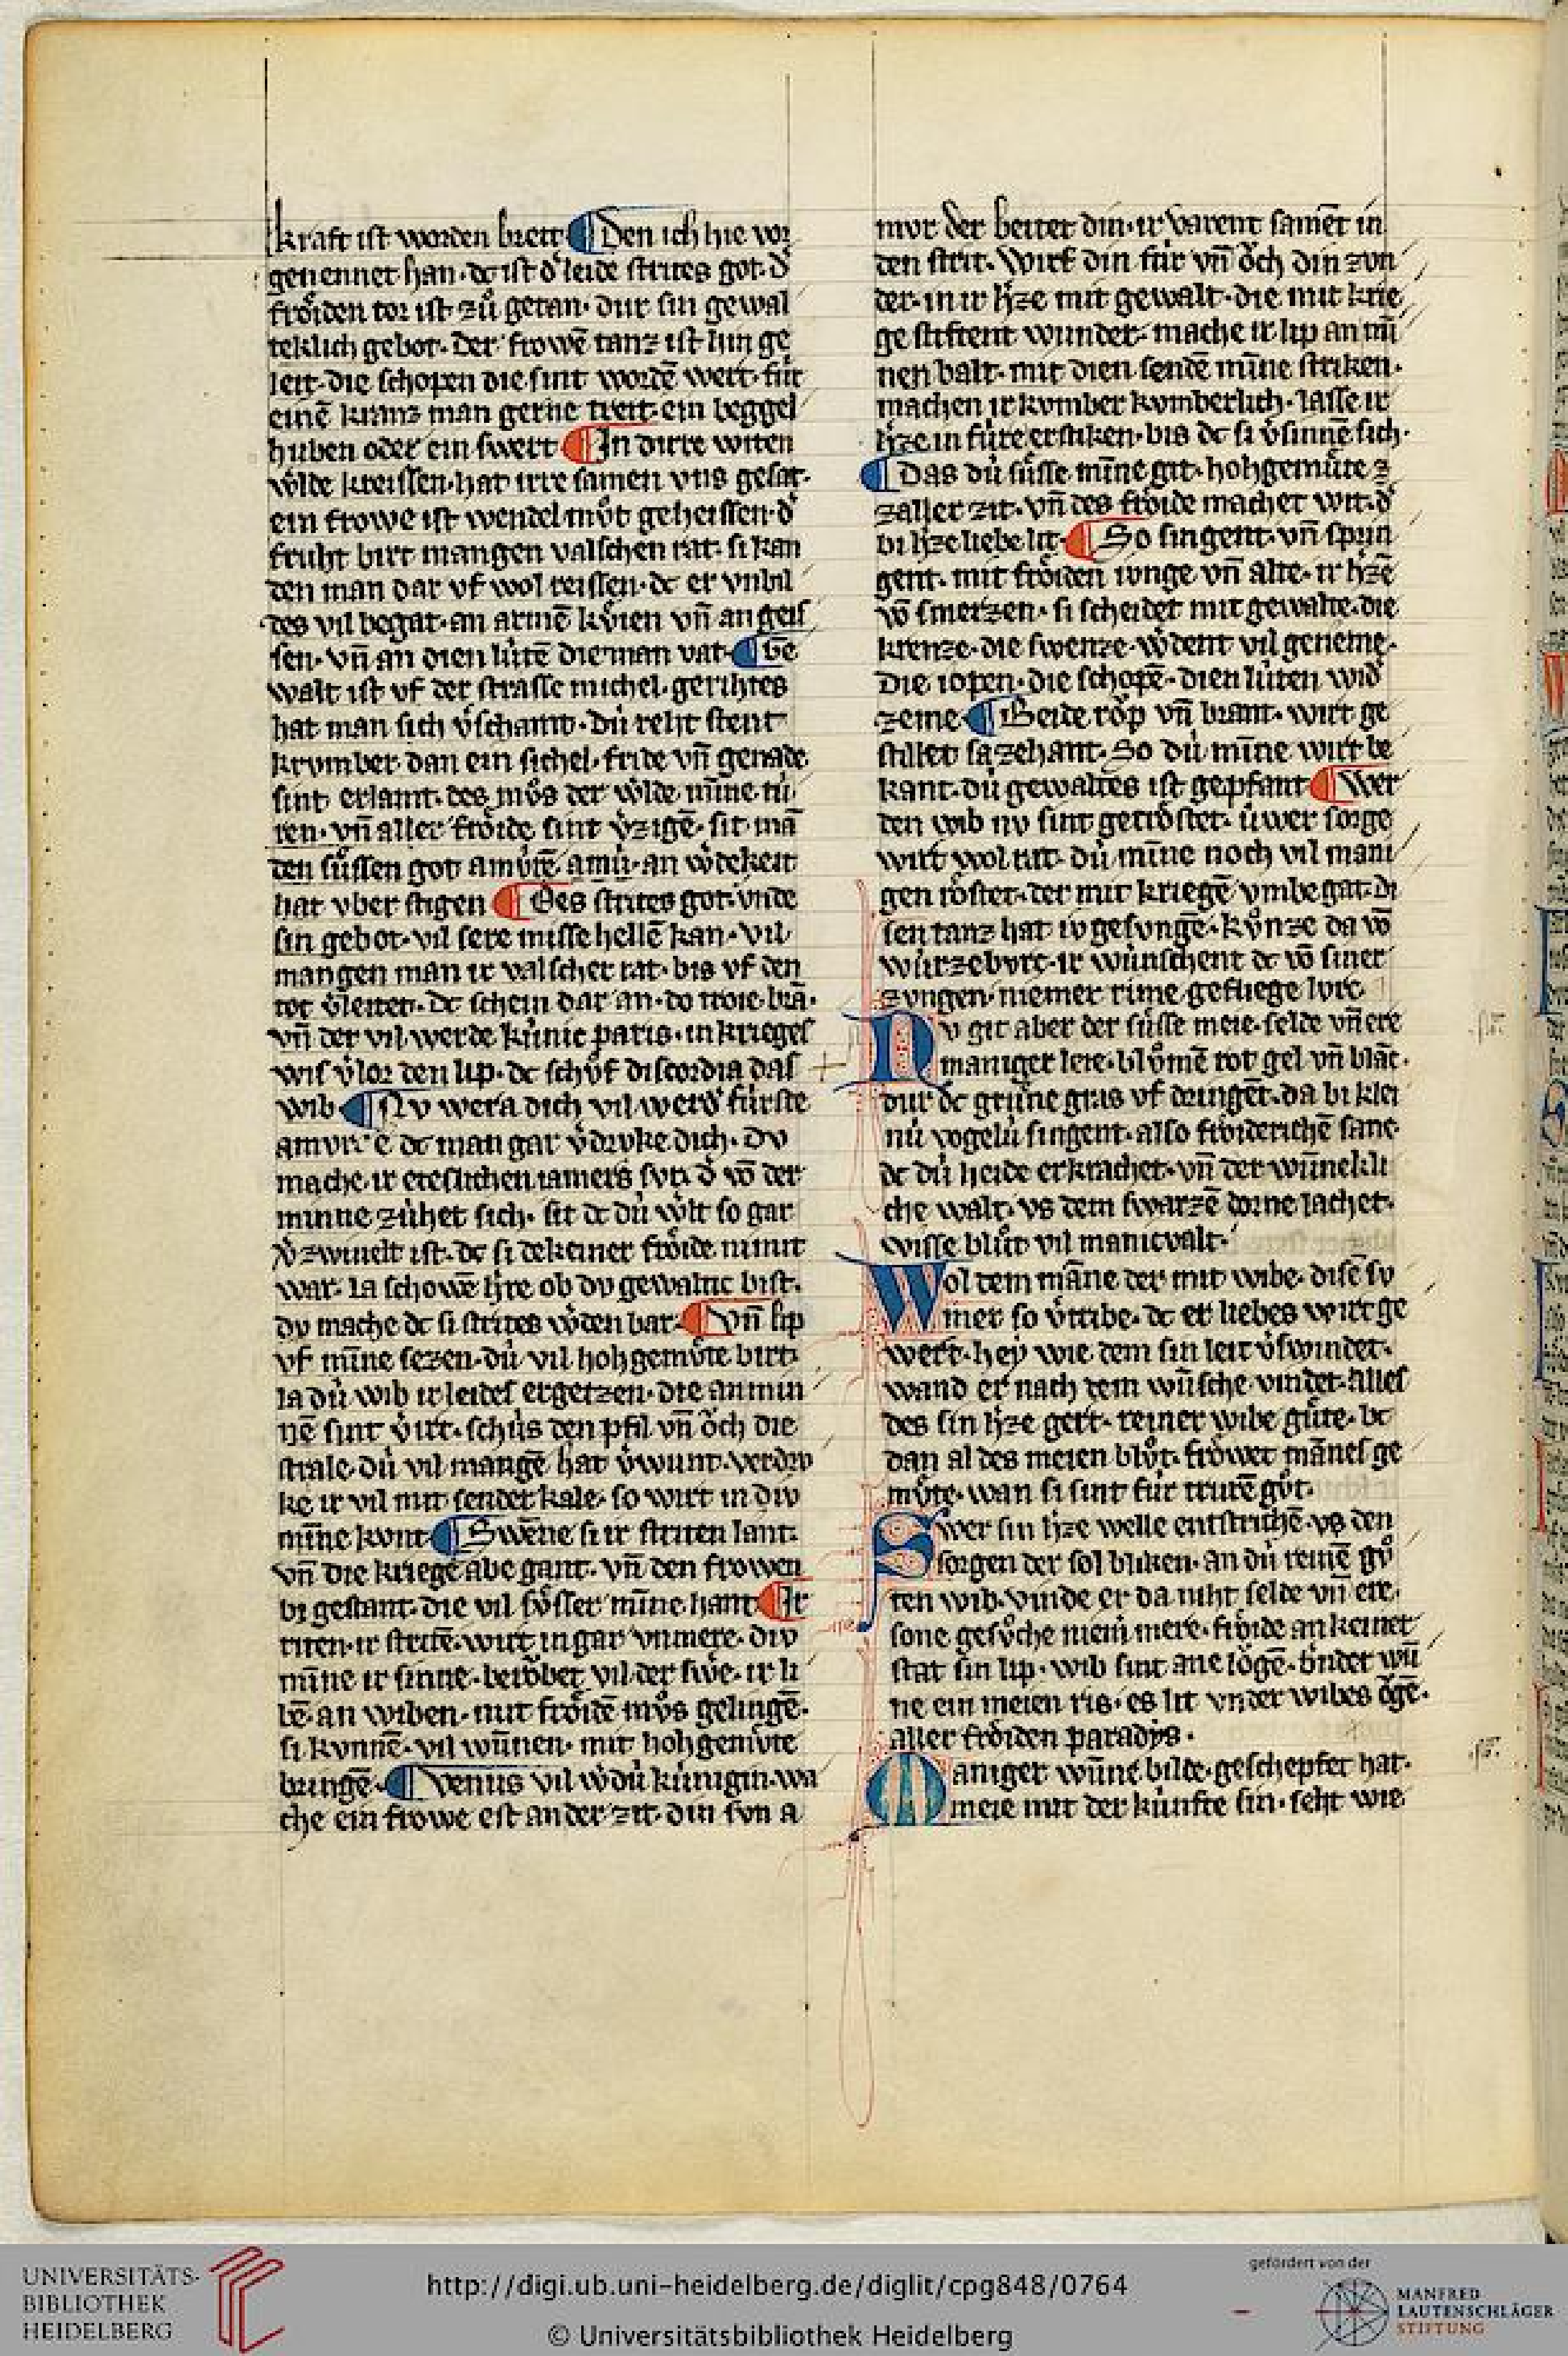 kraft ist worden breit ¶ Den ich hie vor
genennet han · dc ist dˀ leide strites got · dˀ
froͤiden tor ist zuͦ getan · dur sin gewal
teklich gebot · Der frowē tanz ist hin ge
leit · die schopen die sint wordē wert · fúr
einē kranz man gerne treit · ein beggel
huben oder ein swert ¶ In dirre witen
wilde kreissen · hat irre samen vns gesat ·
ein frowe ist wendelmuͦt geheissen · dˀ
fruht birt mangen valschen rat · si kan
den man dar vf wol reissen · dc er vnbil
des vil begat · an armē kuͤien vn̄ an geis
sen · vn̄ an dien lútē die man vat · ¶ Ge
walt ist vf der strasse michel · gerihtes
hat man sich vˀschamt · dú reht stent
krvmber dan ein sichel · fride vn̄ genade
sint erlamt · des muͦs der wilde minne tú
ren · vn̄ aller froͤide sint vˀzigē · sit mā
den suͤssen got amvrē amú · an wˀdekeit
hat vber stigen ¶ Des strites got · vnde
sin gebot · vil sere misse hellē kan · vil
mangen man ir valscher rat · bis vf den
tot vˀleitet · dc schein dar an · do troie bran ·
vn̄ der vil werde kúnic paris · in krieges
wis vˀlor den lip · dc schuͦf discordia das
wib ¶ Nv wera dich vil werdˀ fúrste
amvr · e dc man gar vˀdrvke dich · dv
mache ir etesclichen iamers · dˀ vō der
minne zúhet sich · sit dc dú wˀlt so gar
vˀzwiuelt ist · dc si dekeiner froͤide nimt
war · la schowē hˀre ob dv gewaltic bist ·
dv mache dc si strites wˀden bar · ¶ Vn̄ lip
vf mīne sezen · dú vil hohgemuͤte birt ·
la dú wib ir leides ergetzen · die an min
nē sint vˀirt · schús den pfil vn̄ oͤch die
strale · dú vil mangē hat vˀwunt · verdrv
ke ir vil mit sender kale · so wirt in div
mīne kvnt ¶ Swēne si ir striten lant ·
vn̄ die kriege abe gant · vn̄ den frowen
bi gestant · die vil suͤsser mīne hant ¶ Ir
riten · ir stritē · wirt in gar vnmere · div
mīne ir sinne · beroͮbet vil der swˀe · ir li
bē · an wiben · mit froͤidē muͦs gelingē ·
si kvnnē · vil wūnen · mit hohgemuͤte
bringē · ¶ Venus vil wˀdú kúnigin · wa
che ein frowe est an der zit · din svn a
mvr der beitet din · ir varent samēt in
den strit · Wirf din fúr vn̄ oͤch din zvn
der · in ir hˀze mit gewalt · die mit krie
ge stiftent wunder · mache ir lip an mī
nen balt · mit dien sendē mīne striken ·
machen ir kvmber kvmberlich · lasse ir
hˀze in fúre erstiken · bis dc si vˀsinnē sich ·
¶ Das dú suͤsse mīne git · hohgemuͤte z
zaller zit · vn̄ des froͤide machet wit · dˀ
bi hˀze liebe lit · ¶ So singent · vn̄ sprin
gent · mit froͤiden ivnge vn̄ alte · ir hˀzē
vō smerzen · si scheidet mit gewalte · die
krenze · die swenze · wˀdent vil geneme ·
die iopen · die schopē · dien lúten widˀ
zeme ¶ Beide roͮp vn̄ brant · wirt ge
stillet sa zehant · So dú mīne wirt be
kant · dú gewaltes ist gepfant ¶ Wer
den wib nv sint getroͤstet · úwer sorge
wirt wol rat · dú mīne noch vil mani
gen roͤstet · der mit kriegē vmbe gat · di
sen tanz hat iv gesvngē · kuͦnze da vō
wirzebvrc · ir wúnschent dc vō siner
zvngen · niemer rime gefliege lvrc
Nv git aber der suͤsse meie · selde vn̄ ere
maniger leie · bluͦmē rot gel vn̄ blāc ·
dur dc gruͤne gras vf dringēt · da bi klei
nú vogelú singent · also froͤiderichē sanc
dc dú heide erkrachet · vn̄ der wūnekli
che walt · vs dem swarzē dorne lachet ·
wisse bluͦt vil manicvalt ·
Wol dem māne der mit wibe · disē sv
mer so vˀtribe · dc er liebes wirt ge
wert · hey wie dem sin leit vˀswindet ·
wand er nach dem wúsche vindet · alles
des sin hˀze gert · reiner wibe guͤte · bc
dan al des meien bluͦt · froͤwet māmes ge
muͤte · wan si sint fúr trurē guͦt ·
Swer sin hˀze welle entstrichē · vs den
sorgen der sol bliken · an dú reinē guͦ
ten wib · vinde er da niht selde vn̄ ere ·
sone gesuͦche niem̄ mere · froͤide an keiner
stat sin lip · wib sint ane loͮgē · vnder wū
ne ein meien ris · es lit vnder wibes oͮgē ·
aller froͤiden paradys ·
Maniger wūne bilde · geschepfet hat ·
meie mit der kúnste sin · seht wie
UNIVERSITÄTS-
BIBLIOTHEK
HEIDELBERG
http://digi.ub.uni-heidelberg.de/diglit/cpg848/0764
© Universitätsbibliothek Heidelberg
gefördert von der
MANFRED
LAUTENSCHLÄGER
STIFTUNG